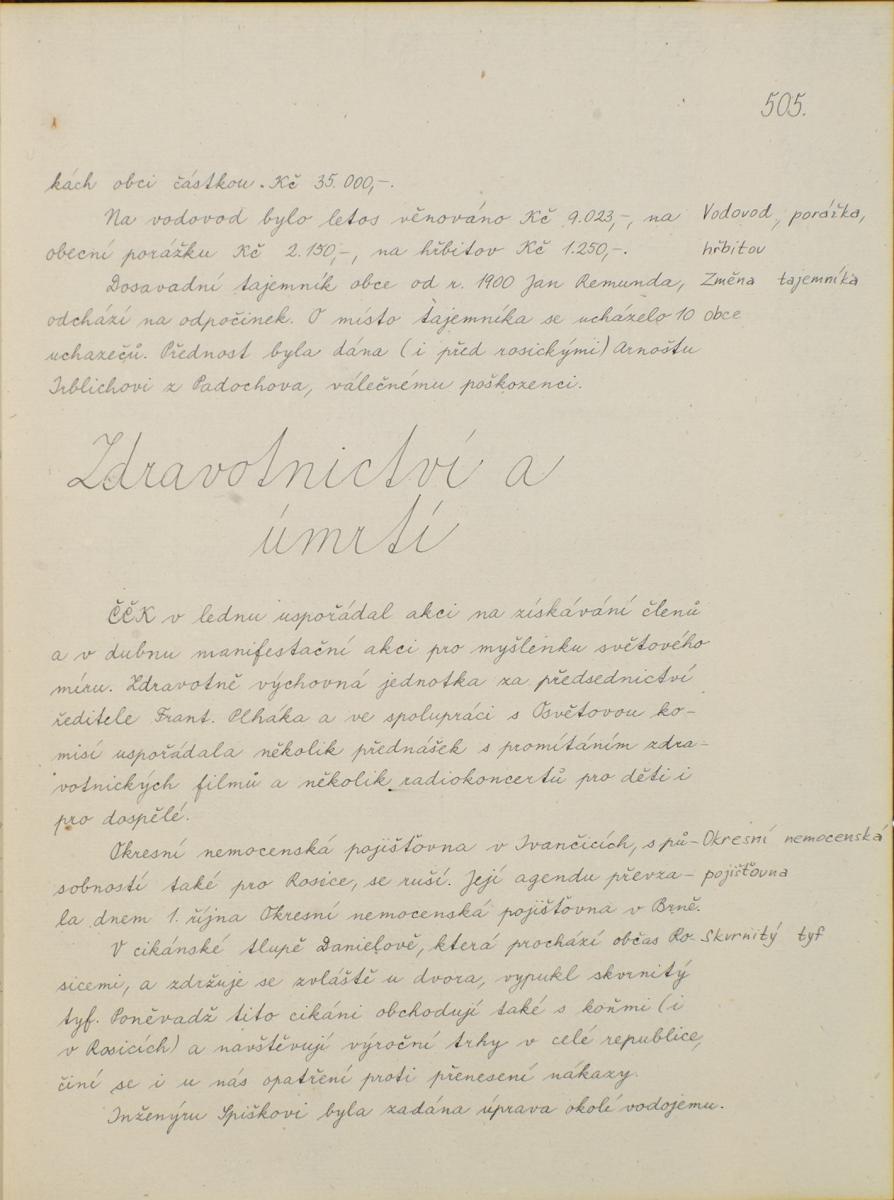 505.
kách obci částkou. Kč 35.000,-.
Na vodovod bylo letos věnováno Kč 9.023,-, na Vodovod, porážka,
obecní porážku Kč 2.150,-, na hřbitov Kč 1.250,-. hřbitov
Dosavadní tajemník obce od r. 1900 Jan Remunda, Změna tajemníka
odchází na odpočinek. O místo tajemníka se ucházelo 10 obce
uchazečů. Přednost byla dána (i před rosickými) Arnoštu
Irblichovi z Padochova, válečnému poškozenci.
Zdravotnictví a
úmrtí
ČČK v lednu uspořádal akci na získávání členů
a v dubnu manifestační akci pro myšlenku světového
míru. Zdravotně výchovná jednotka za předsednictví
ředitele Frant. Plháka a ve spolupráci s Osvětovou ko-
misí uspořádala několik přednášek s promítáním zdra-
votnických filmů a několik radiokoncertů pro děti i
pro dospělé.
Okresní nemocenská pojišťovna v Ivančicích, s pů- Okresní nemocenská
sobností také pro Rosice, se ruší. Její agendu převza- pojišťovna
la dnem 1. října Okresní nemocenská pojišťovna v Brně.
V cikánské tlupě Danielově, která prochází občas Ro- Skvrnitý tyf
sicemi, a zdržuje se zvláště u dvora, vypukl skvrnitý
tyf. Poněvadž tito cikáni obchodují také s koňmi (i
v Rosicích) a navštěvují výroční trhy v celé republice,
činí se i u nás opatření proti přenesení nákazy.
Inženýru Spiškovi byla zadána úprava okolí vodojemu.